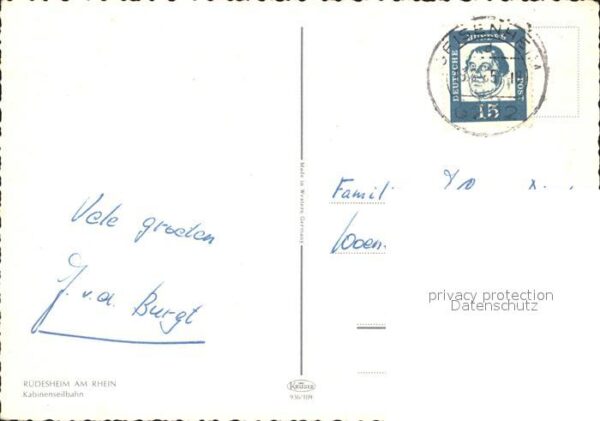 Vele groeten
J. v. d. Burgt
RÜDESHEIM AM RHEIN
Kabinenseilbahn
Made in Western Germany
Krüger
936/109
GEISENHEIM
DEUTSCHE
POST
15
Famil
privacy protection
Datenschutz